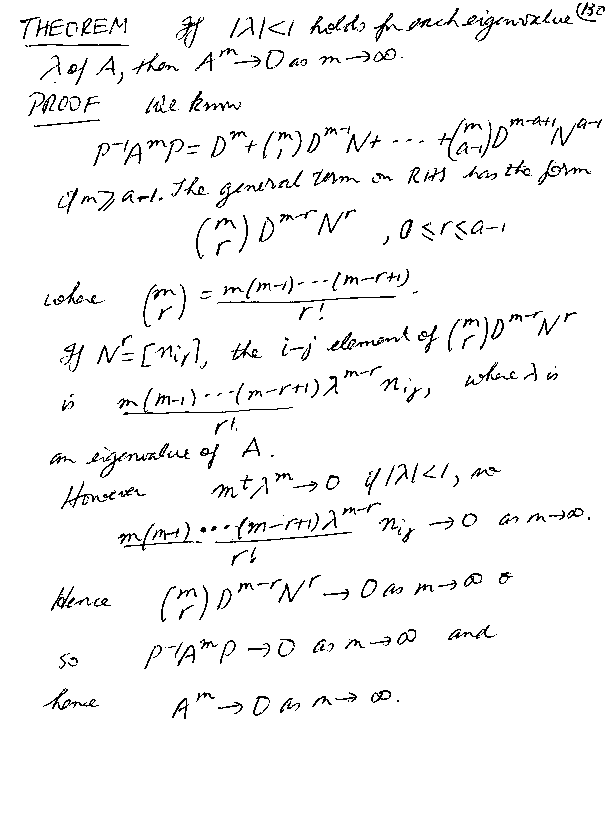 THEOREM If |λ|<1 holds for each eigenvalue (130
λ of A, then A^m → 0 as m → ∞.
PROOF We know
P^-1 A^m P = D^m + (m 1) D^m-1 N + ... + (m a-1) D^m-a+1 N^a-1
if m ≥ a-1. The general term on RHS has the form
(m r) D^m-r N^r , 0 ≤ r ≤ a-1
where (m r) = m(m-1)---(m-r+1) / r! .
If N^r = [n_ij], the i-j element of (m r) D^m-r N^r
is m(m-1)---(m-r+1) / r! λ^m-r n_ij, where λ is
an eigenvalue of A.
However m^t λ^m → 0 if |λ|<1, so
m(m-1)...(m-r+1) λ^m-r / r! n_ij → 0 as m → ∞.
Hence (m r) D^m-r N^r → 0 as m → ∞ &
so P^-1 A^m P → 0 as m → ∞ and
hence A^m → 0 as m → ∞.